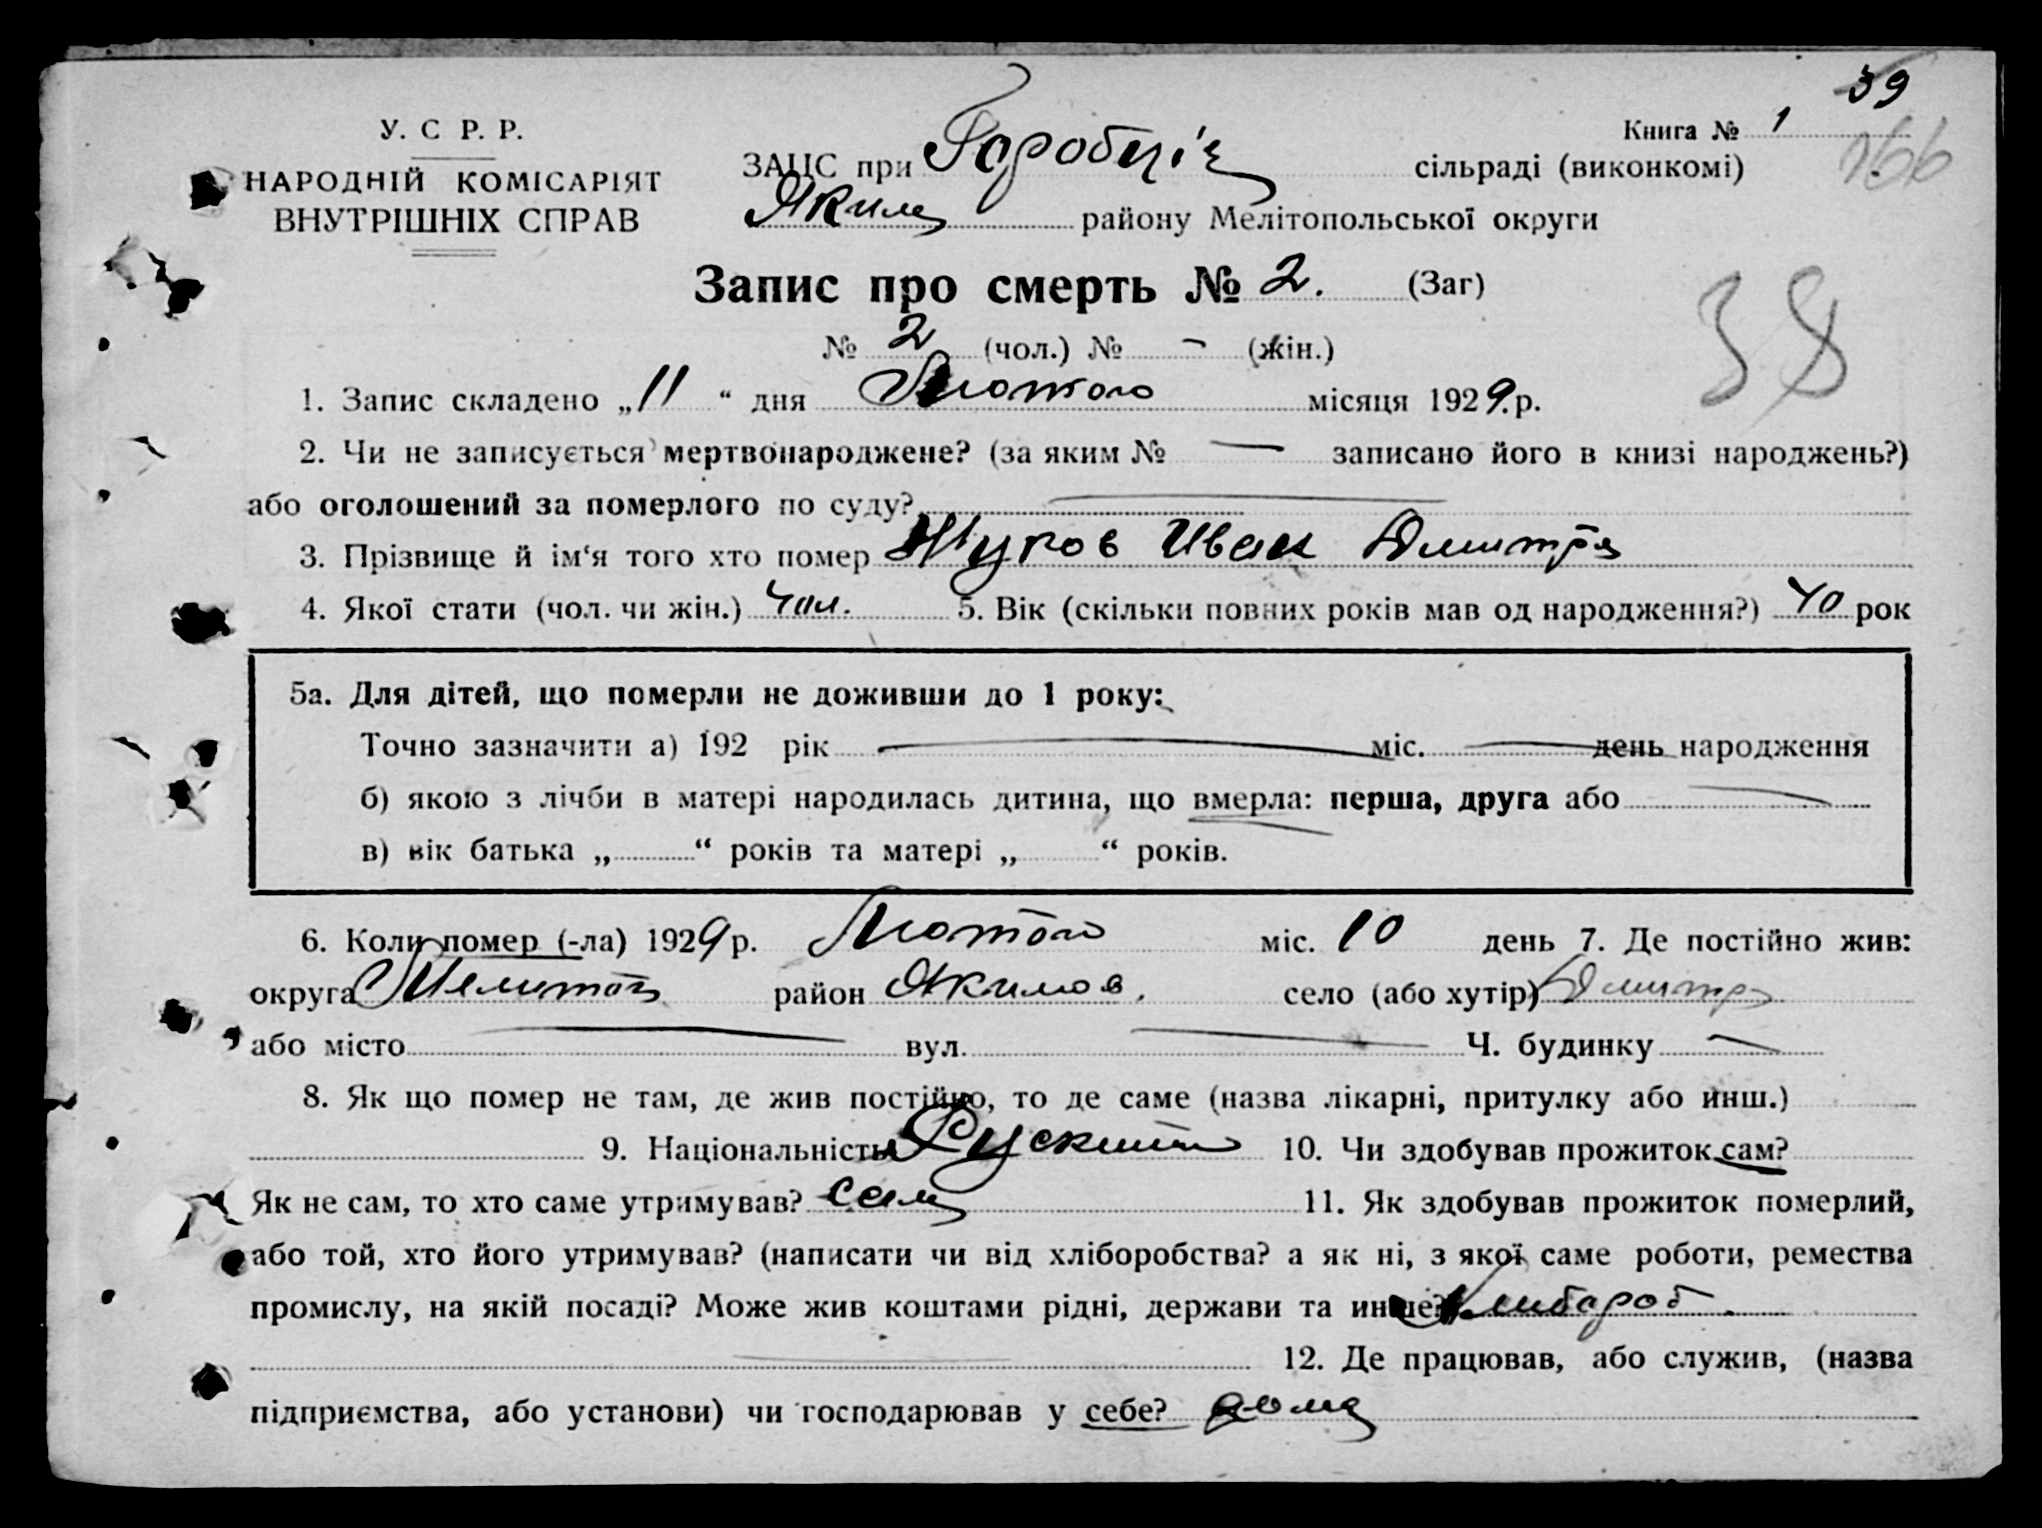 39
У. С Р. Р.
Книга № 1
166
НАРОДНІЙ КОМІСАРІЯТ
ВНУТРІШНІХ СПРАВ
ЗАЦС при сільраді (виконкомі)
Яким району Мелітопольської округи
Запис про смерть № 2. (Заг)
38
№ 2 (чол.) № – (жін.)
1. Запис складено „11“ дня Лютого місяця 1929.р.
2. Чи не записується мертвонароджене? (за яким № — записано його в книзі народжень?)
або оголошений за померлого по суду? —
3. Прізвище й ім‘я того хто помер Жуков Иван Дмитр
4. Якої стати (чол. чи жін.) чол. 5. Вік (скільки повних років мав од народження?) 40 рок
5а. Для дітей, що померли не доживши до 1 року:
Точно зазначити а) 192 рік — міс. — день народження
б) якою з лічби в матері народилась дитина, що вмерла: перша, друга або —
в) вік батька „ “ років та матері „ “ років.
6. Коли помер (-ла) 1929 р. Лютого міс. 10 день 7. Де постійно жив:
округа Мелитоп район Якимов. село (або хутір) Дмитр
або місто — вул. — Ч. будинку —
8. Як що помер не там, де жив постійно, то де саме (назва лікарні, притулку або инш.)
9. Національність Руский 10. Чи здобував прожиток сам?
Як не сам, то хто саме утримував? сам 11. Як здобував прожиток померлий,
або той, хто його утримував? (написати чи від хліборобства? а як ні, з якої саме роботи, ремества
промислу, на якій посаді? Може жив коштами рідні, держави та инше?
12. Де працював, або служив, (назва
підприємства, або установи) чи господарював у себе? дома